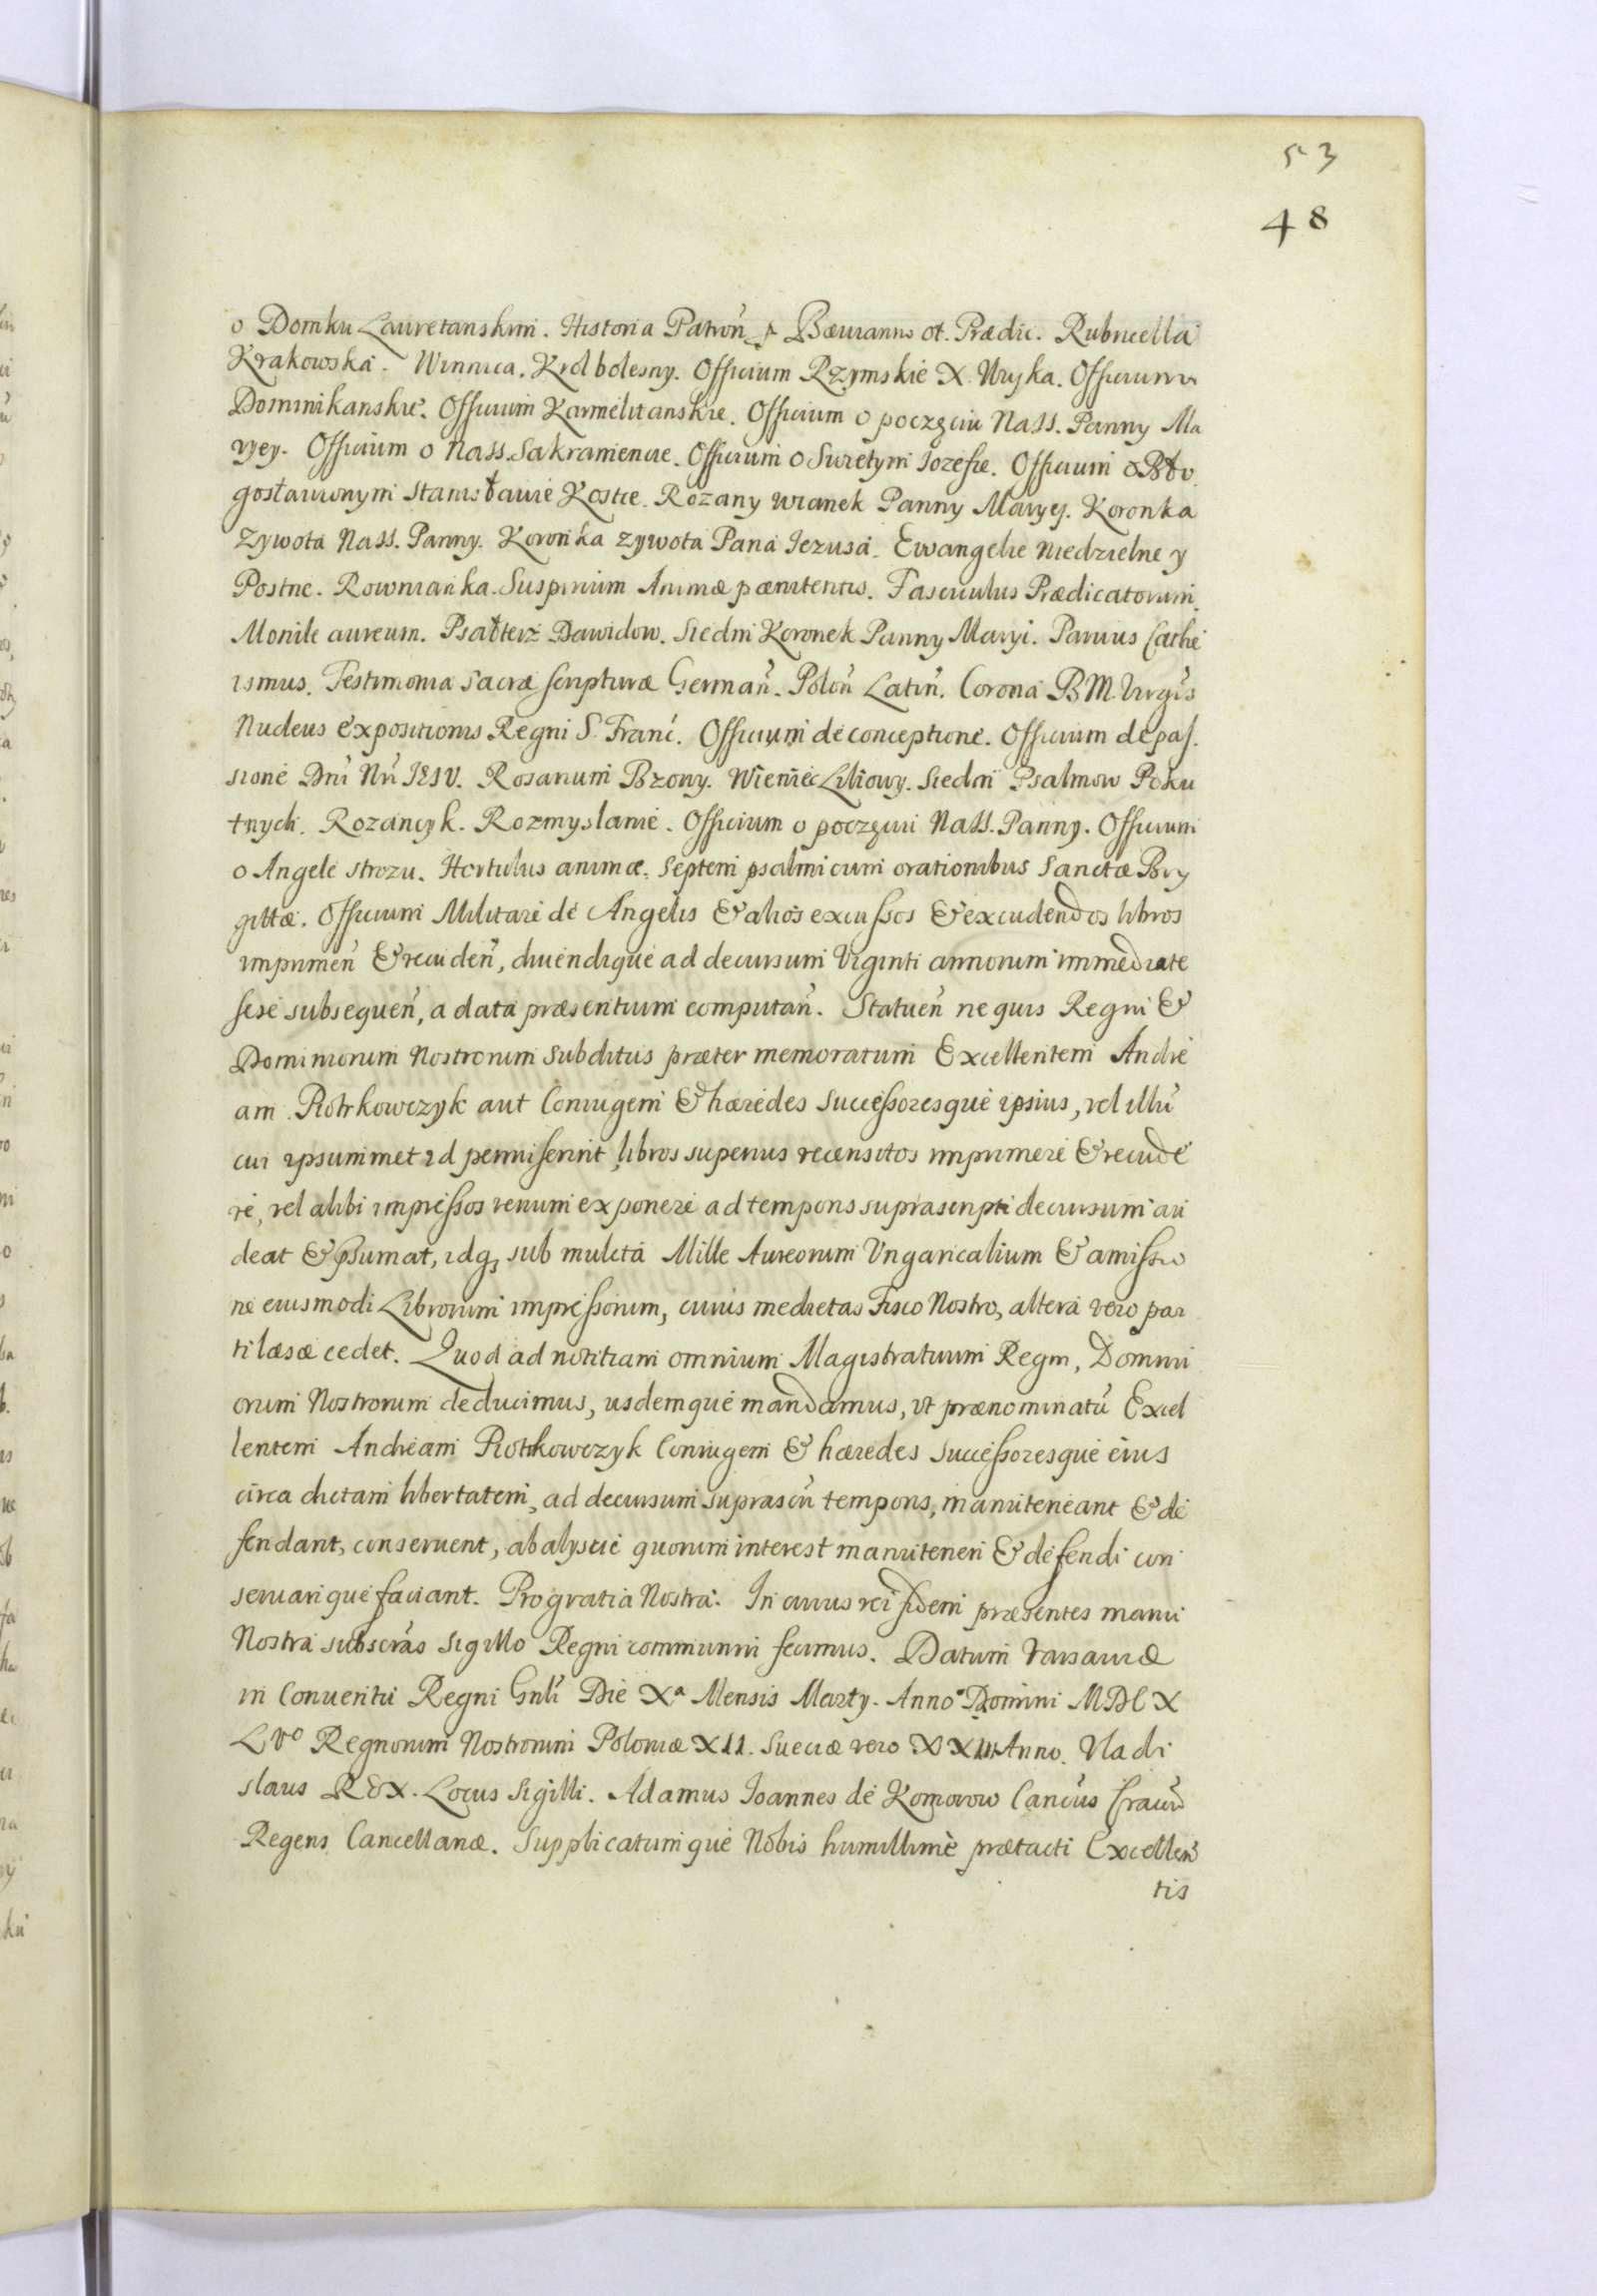 53
48
o Domku Lauretanskim. Historia Patron̄ Bæuranns ot. Prædic. Rubricella
Krakowska. Winnica. Krol bolesny. Officium Rzymskie X. Wuyka. Officium
Dominikanskie. Officium Karmelitanskie. Officium o poczęciu Nass. Panny Ma
ryey. Officium o Nass. Sakramencie. Officium o Swietym Iozefie. Officium o Bło
gosławionym Stanisławie Kostce. Rozany wianek Panny Maryey. Koronka
Zywota Nass. Panny. Koronka zywota Pana Iezusa. Ewangelie Niedzielne y
Postne. Rownianka. Suspirium Animæ pænitentis. Fasciculus Prædicatorum.
Monile aureum. Psałterz Dawidow. Siedm Koronek Panny Maryi. Paruus Cathe
ismus. Testimonia Sacræ scripturæ German̄. Polon̄ Latin̄. Corona B M. Virgis
Nucleus expositionis Regni S. Franc. Officium de conceptione. Officium de pas.
sione Dnī Nrī IESV. Rosarium Bzowy. Wieniec Liliowy. Siedm Psalmow Poku
tnych. Rozanczyk. Rozmyslanie. Officium o poczęciu Nass. Panny. Officium
o Angele strozu. Hortulus animæ. Septem psalmi cum orationibus Sanctæ Bry
gittæ. Officium Militare de Angelis & alios excussos & excudendos libros
imprimen̄ & recuden̄, diuendique ad decursum Viginti annorum immediate
sese subsequen̄, a data præsentium computan̄. Statuen̄ ne quis Regni &
Dominiorum Nostrorum Subditus præter memoratum Excellentem Andre
am Piotrkowczyk aut Coniugem & hæredes Successoresque ipsius, vel illū
cui ipsummet id permiserint, libros superius recensitos imprimere & recude
re, vel alibi impressos venum exponere ad temporis suprascripti decursum au
deat & psumat, idq₃ sub mulcta Mille Aureorum Vngaricalium & amissio
ne eiusmodi Librorum impressorum, cuius medietas Fisco Nostro, altera vero par
ti læsæ cedet. Quod ad notitiam omnium Magistratuum Regni, Domini
orum Nostrorum deducimus, iisdemque mandamus, vt prænominatū Excel
lentem Andream Piotrkowczyk Coniugem & hæredes Successoresque eius
circa dictam libertatem, ad decursum suprascrī temporis, manuteneant & de
fendant, conseruent, ab alysque quorum interest manuteneri & defendi con
seruarique faciant. Pro gratia Nostra. In cuius rei fidem præsentes manu
Nostra subscrās Sigillo Regni communiri fecimus. Datum Varsauiæ
in Conuentu Regni Gnlī Die Xᵃ Mensis Marty. Anno Domini MDCX
LVº Regnorum Nostrorum Poloniæ XII. Sueciæ vero XIII Anno. Vladi
slaus REX. Locus Sigilli. Adamus Ioannes de Komorow Cancūs
Regens Cancellariæ. Supplicatumque Nobis humillimè prætacti Excellen
tis